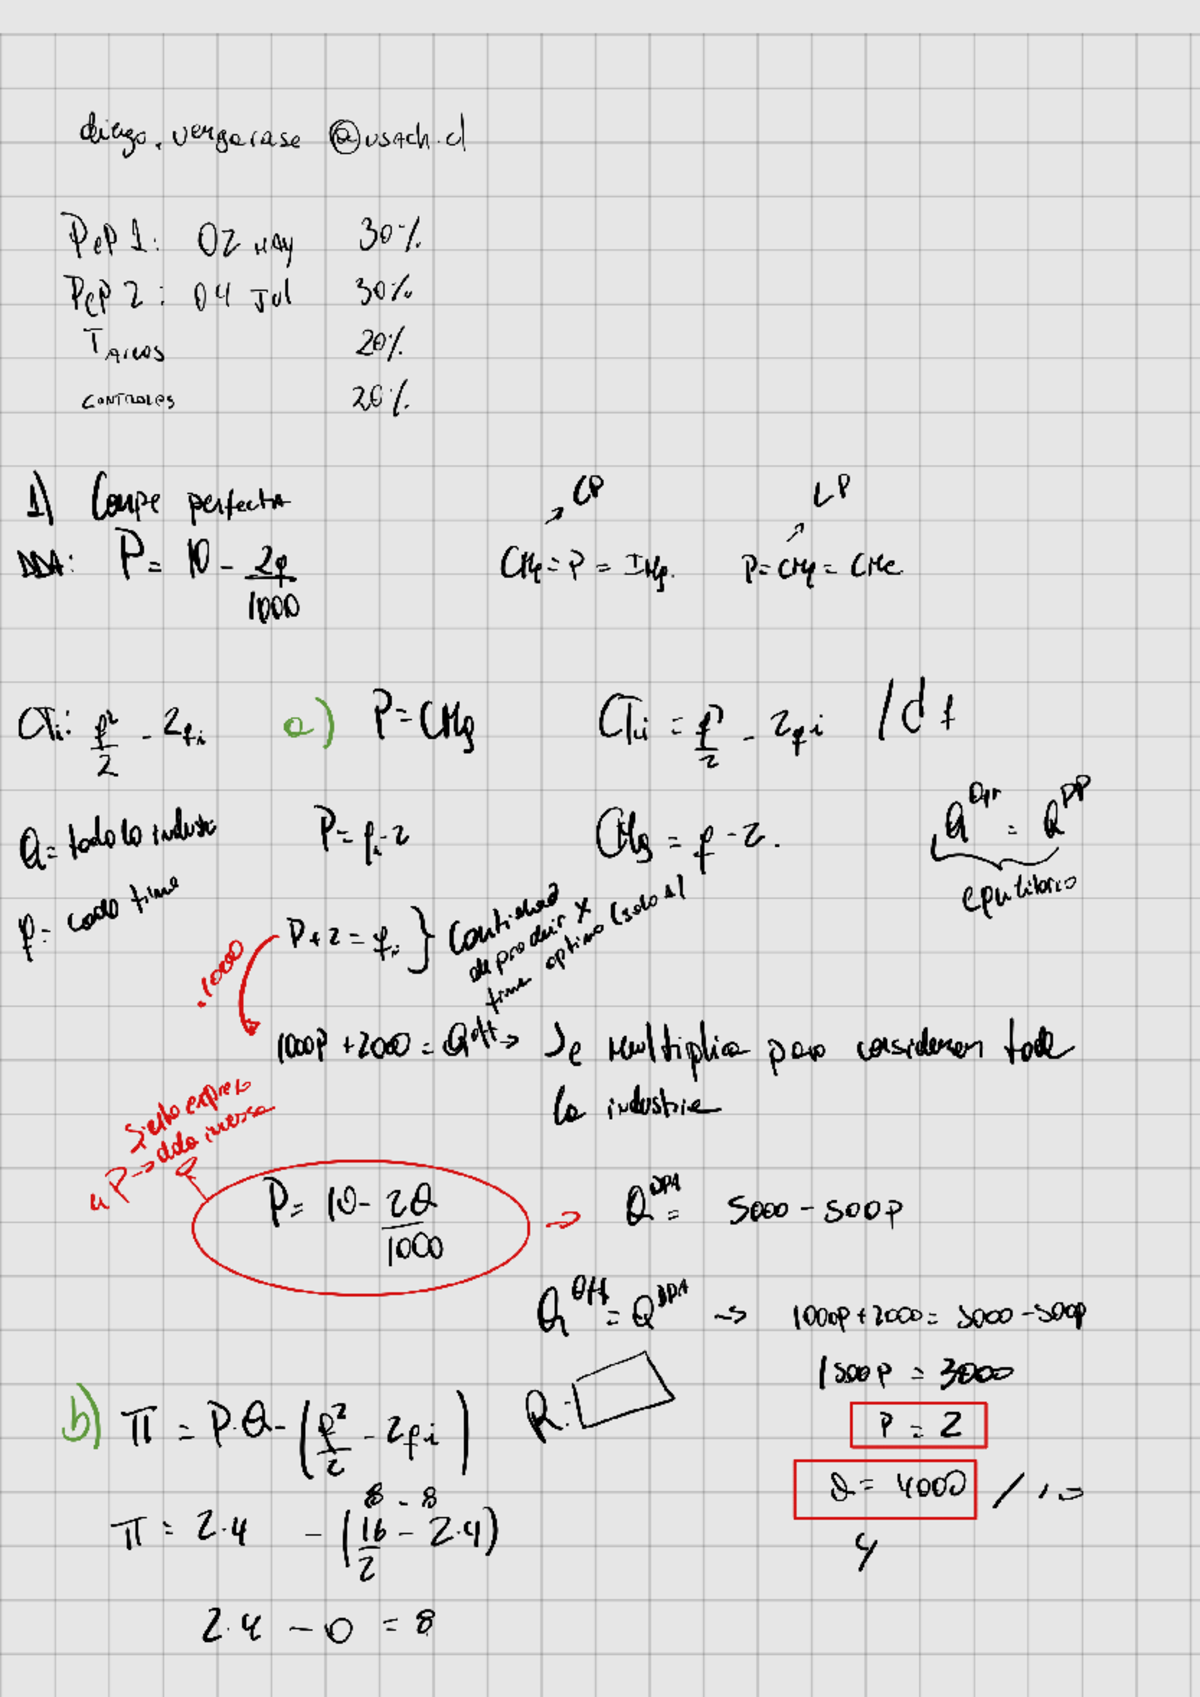 diego.vergarase @usach.cl
PEP 1: 02 MAY 30%
PEP 2: 04 Jul 30%
TAREAS 20%
CONTROLES 20%
1) Compe perfecta
CP
LP
DDA: P = 10 - 2q/1000
CMg = P = IMg.
P = CMg = CMe
CTi: q²/2 - 2qi
a) P = CMg
CTi = q²/2 - 2qi /dq
Q = toda la industria
P = qi - 2
CMg = q - 2.
Q^Ofr = Q^DD
equilibrio
q = cada firma
P + 2 = qi } Cantidad de producir x firma optimo (solo 1)
.1000
1000P + 2000 = Q^Off → Se multiplica para consideran toda
la industria
Si esta expreso
u P → dda inversa
P = 10 - 2Q/1000 → Q^DDA = 5000 - 500P
Q^Off = Q^DDA → 1000P + 2000 = 5000 - 500P
1500P = 3000
P = 2
Q = 4000 /
4
b) π = P·Q - (q²/2 - 2qi)
R:
8 - 8
π = 2·4 - (16/2 - 2·4)
2·4 - 0 = 8